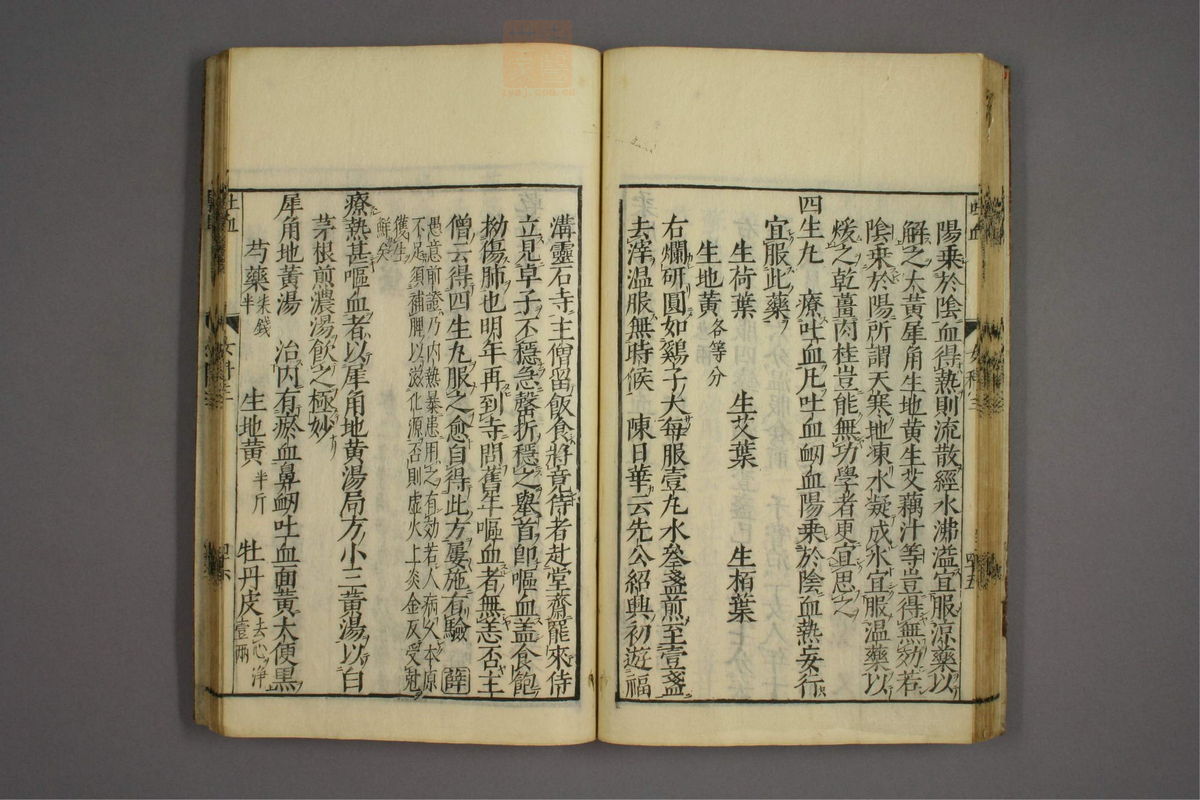 陽乗於陰血得熱則流散經水沸溢宜服涼藥以
解之大黄犀角生地黄生艾藕汁等豈得無効若
陰乗於陽所謂天寒地凍水凝成氷宜服温藥以
煖之乾薑肉桂豈能無功學者更宜思之
四生丸　療吐血凡吐血衂血陽乗於陰血熱妄行
宜服此藥
生荷葉　生艾葉　生栢葉
生地黄各等分
右爛研圓如鷄子大每服壹丸水叁盞煎至壹盞
去滓温服無時候　陳日華云先公紹興初遊福
溝靈石寺主僧留飯食將竟侍者赴堂齋罷來侍
立見卓子不穩急罄折穩之舉首卽嘔血盖食飽
拗傷肺也明年再到寺問舊年嘔血者無恙否主
僧云得四生丸服之愈自得此方屢施有驗　薛
愚意前證乃内熱暴患用之有効若人病久本原
不足須補脾以滋化源否則虛火上炎金反受尅
獲生
鮮矣
療熱甚嘔血者以犀角地黄湯局方小三黄湯以白
茅根煎濃湯飲之極妙
犀角地黄湯　治内有瘀血鼻衂吐血面黄大便黒
芍藥半錢　生地黄半斤　牡丹皮去心淨壹兩
吐血